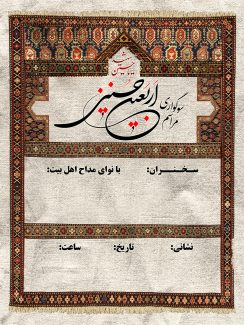 مراسم سوگواری
اربعین حسینی
سخنران: با نوای مداح اهل بیت:
نشانی: تاریخ: ساعت: